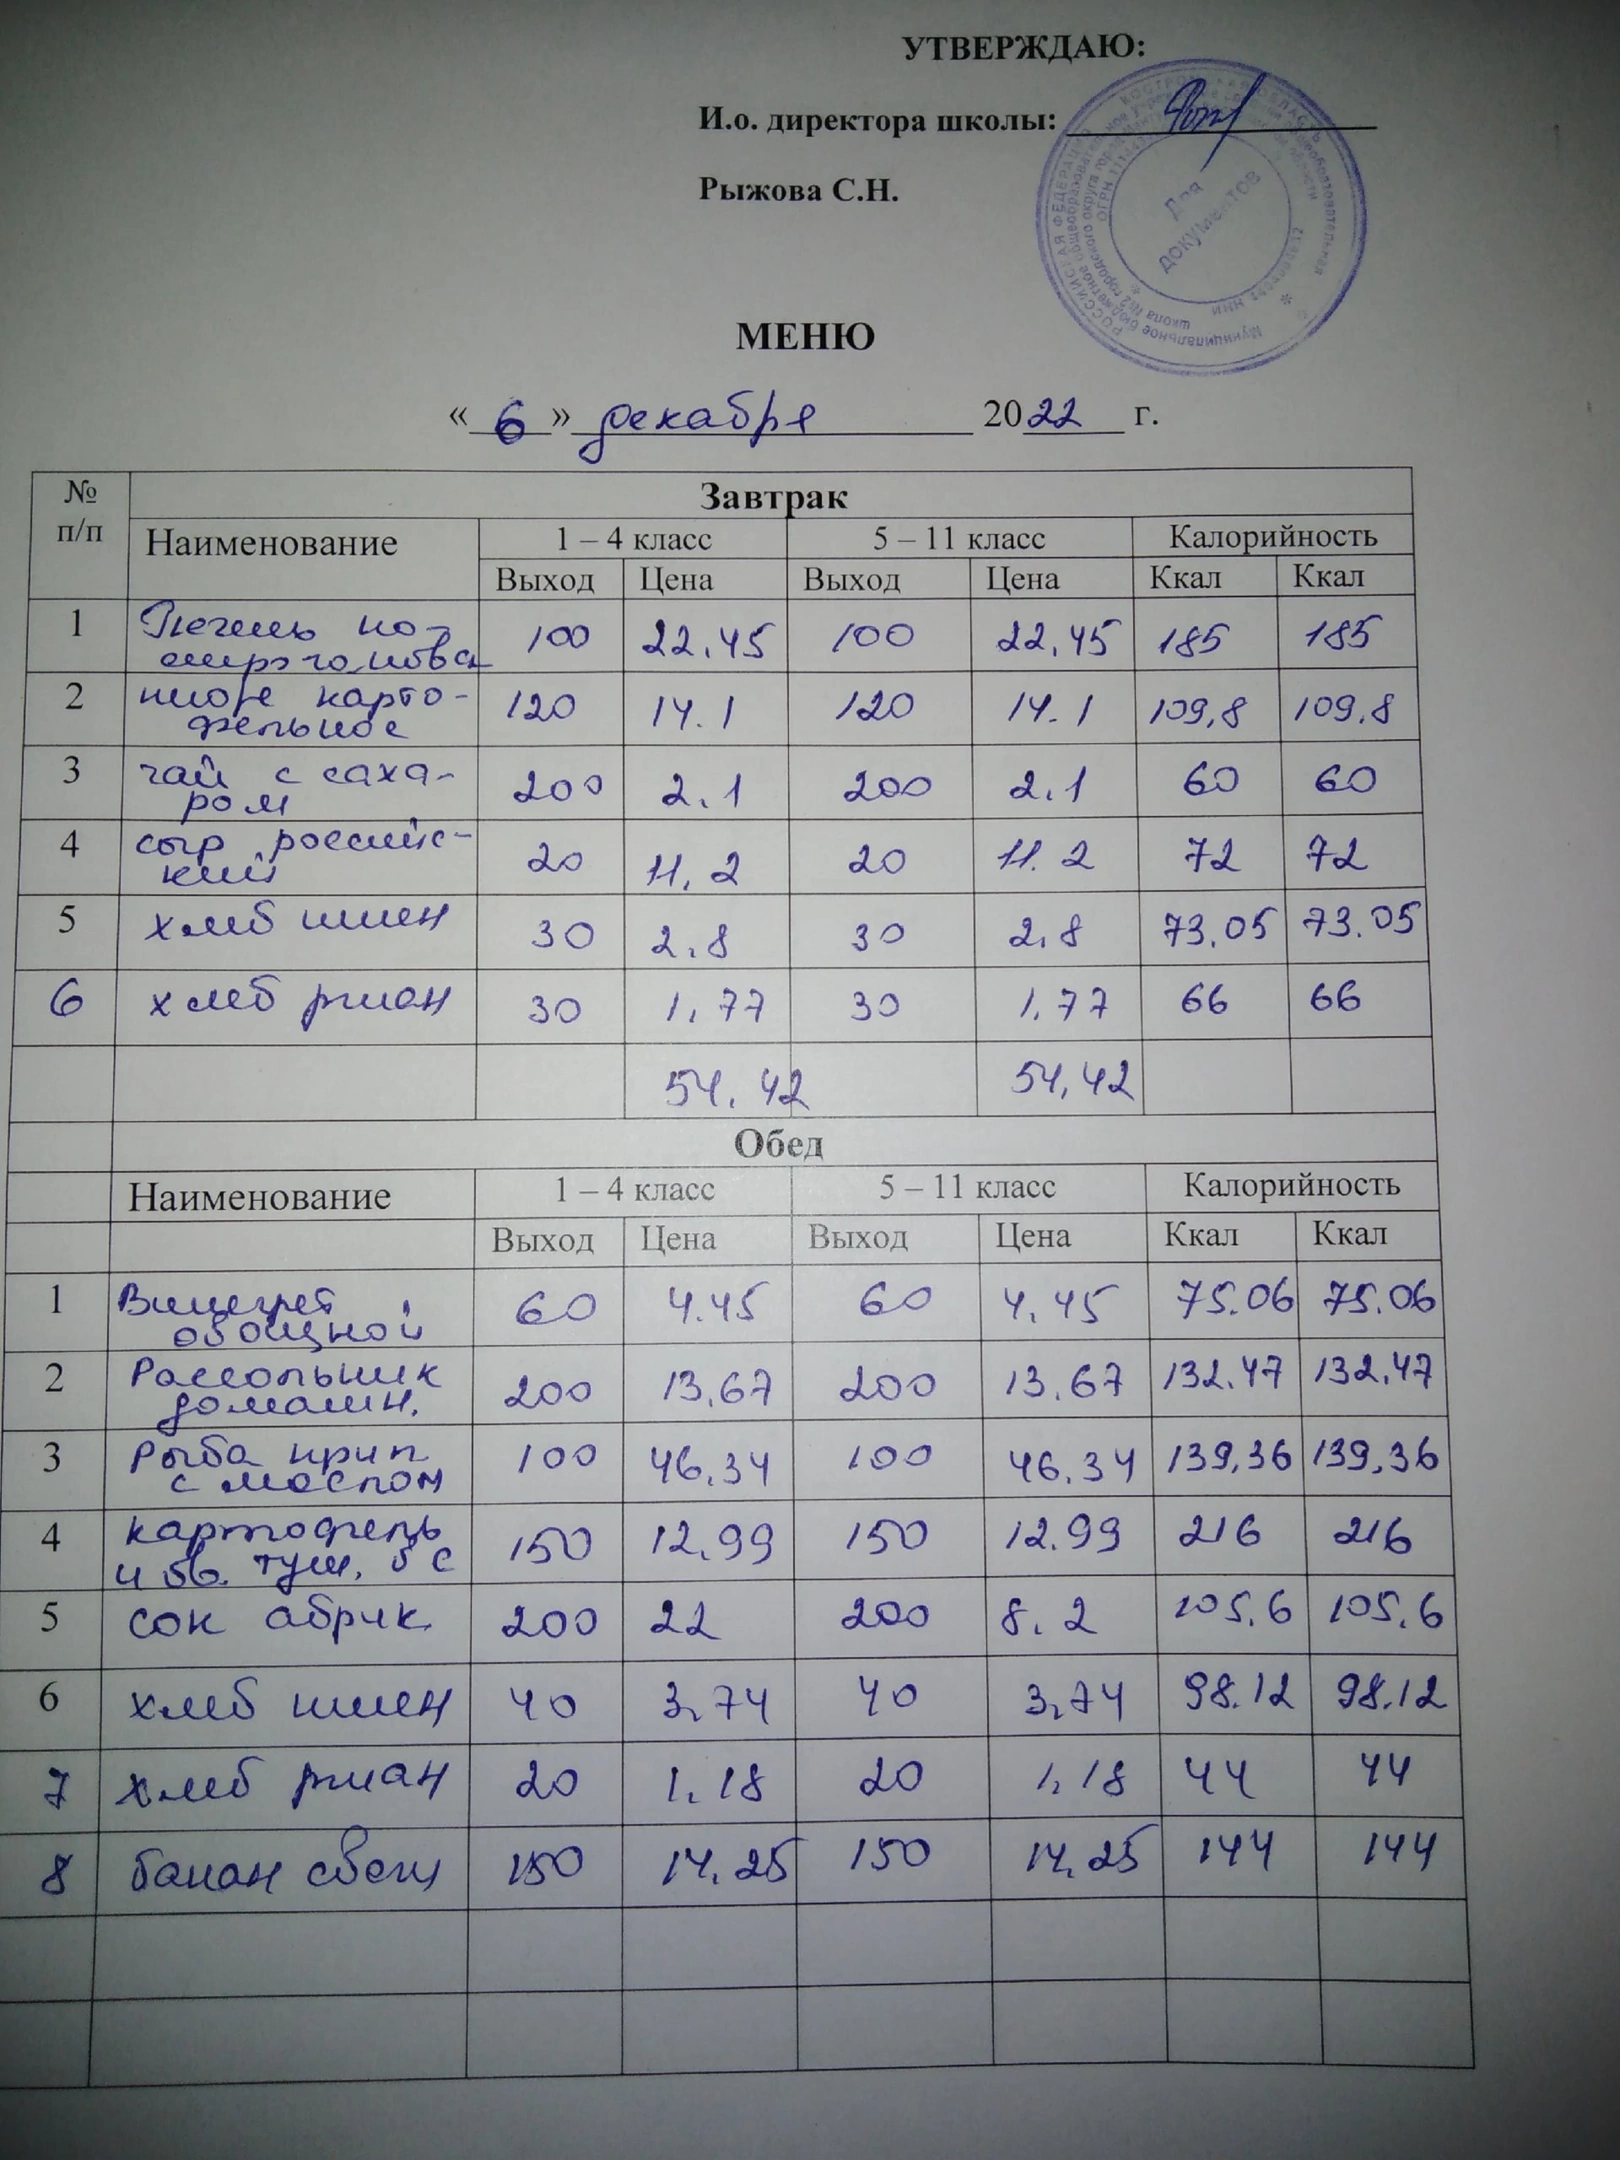 УТВЕРЖДАЮ:
И.о. директора школы:
Рыжова С.Н.
РОССИЙСКАЯ ФЕДЕРАЦИЯ КОСТРОМСКАЯ ОБЛАСТЬ
Для
документов
МЕНЮ
« 6 » декабря 2022 г.
№ п/п Завтрак
Наименование 1 – 4 класс 5 – 11 класс Калорийность
Выход Цена Выход Цена Ккал Ккал
1 Печень по- 100 22.45 100 22.45 185 185
строгановск
2 пюре карто- 120 14.1 120 14.1 109,8 109,8
фельное
3 чай с саха- 200 2.1 200 2.1 60 60
ром
4 сыр россий- 20 11.2 20 11.2 72 72
кий
5 хлеб пшен 30 2.8 30 2.8 73,05 73.05
6 хлеб ржан 30 1.77 30 1.77 66 66
54.42 54,42
Обед
Наименование 1 – 4 класс 5 – 11 класс Калорийность
Выход Цена Выход Цена Ккал Ккал
1 Винегрет 60 4.45 60 4.45 75.06 75.06
овощной
2 Рассольник 200 13.67 200 13.67 132.47 132.47
домашн.
3 Рыба прип 100 46.34 100 46.34 139,36 139,36
с маслом
4 картофель 150 12.99 150 12.99 216 216
и ов. туш. б с
5 сок абрик. 200 22 200 8.2 105,6 105.6
6 хлеб пшен 40 3.74 40 3.74 98.12 98.12
7 хлеб ржан 20 1.18 20 1.18 44 44
8 банан свеж 150 14.25 150 14.25 144 144